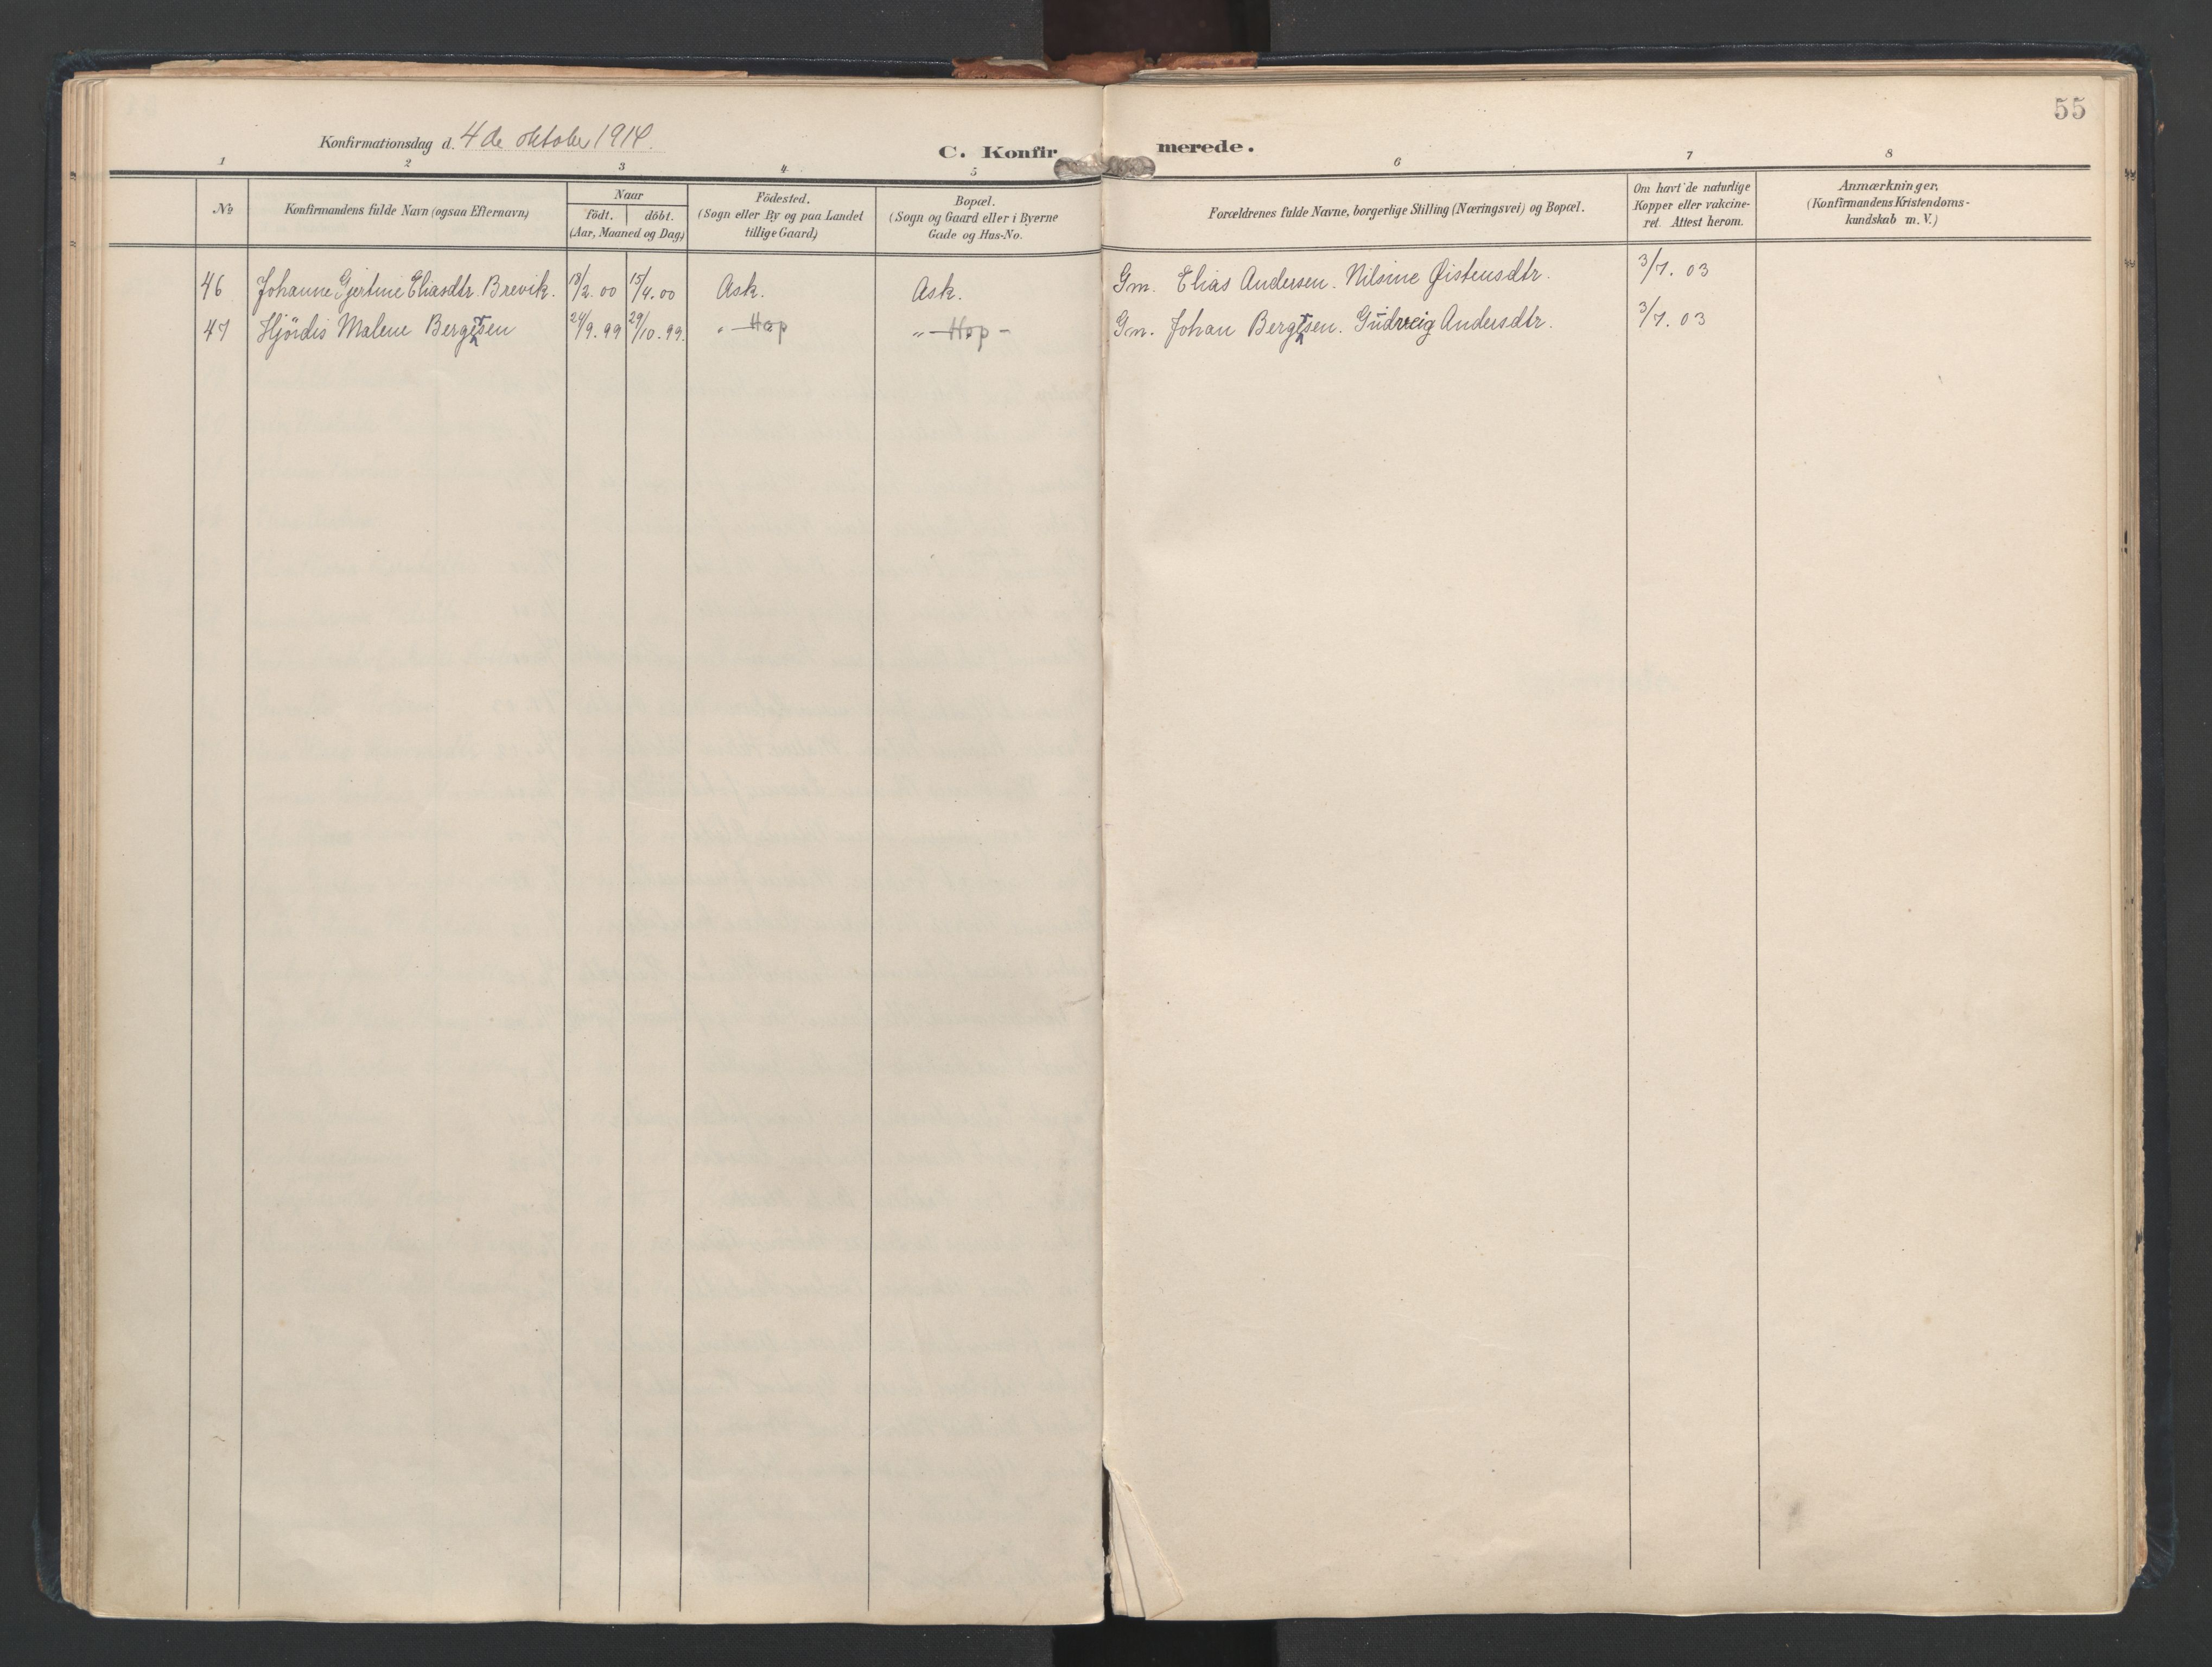 55
Konfirmationsdag d. 4 de oktober 1914.
C. Konfirmerede.
1 2 3 4 5 6 7 8
No
Konfirmandens fulde Navn (ogsaa Efternavn)
Naar
födt. döbt.
(Aar, Maaned og Dag)
Födested.
(Sogn eller By og paa Landet
tillige Gaard)
Bopæl.
(Sogn og Gaard eller i Byerne
Gade og Hus-No.
Forældrenes fulde Navne, borgerlige Stilling (Næringsvei) og Bopæl.
Om havt de naturlige
Kopper eller vakcine-
ret. Attest herom.
Anmærkninger.
(Konfirmandens Kristendoms-
kundskab m. V.)
46 Johanne Gjertine Eliasdtr. Brevik. 18/2.00 15/4.00 Ask. Ask. Gm. Elias Andersen. Nilsine Øistensdtr. 3/7. 03
47 Hjördis Malene Bergtsen 24/9.99 29/10.99. " Hop " Hop - Gm. Johan Bergtsen. Gudveig Andersdtr. 3/7. 03